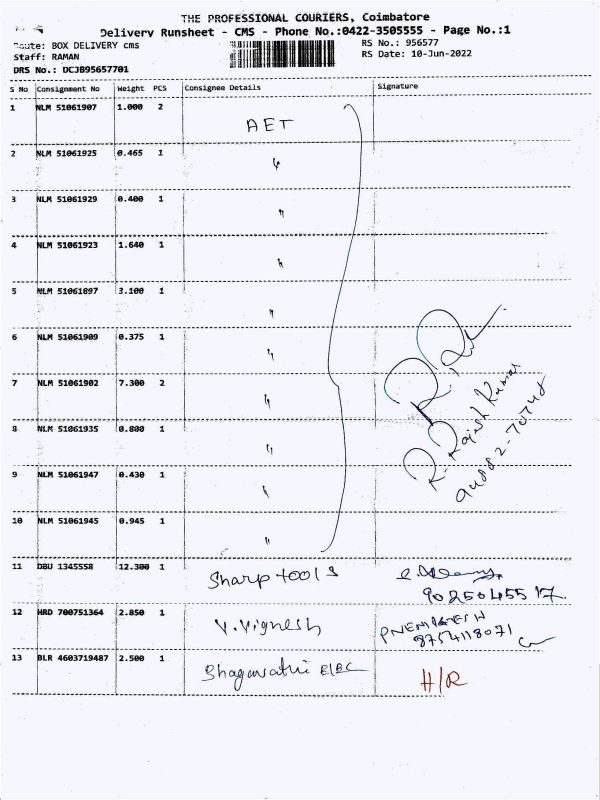 THE PROFESSIONAL COURIERS, Coimbatore
Delivery Runsheet - CMS - Phone No.:0422-3505555 - Page No.:1
Route: BOX DELIVERY cms
RS No.: 956577
Staff: RAMAN
RS Date: 10-Jun-2022
DRS No.: DCJB95657701
S No Consignment No Weight PCS Consignee Details Signature
1 NLM 51061907 1.000 2 AET
2 NLM 51061925 0.465 1 "
3 NLM 51061929 0.400 1 "
4 NLM 51061923 1.640 1 "
5 NLM 51061897 3.100 1 "
6 NLM 51061909 0.375 1 "
7 NLM 51061902 7.300 2 "
8 NLM 51061935 0.800 1 "
9 NLM 51061947 0.430 1 "
10 NLM 51061945 0.945 1 "
R. Rajesh Kumar
11 DBU 1345558 12.300 1 Sharp tools
12 HRD 700751364 2.850 1 V. Vignesh
8754118071
13 BLR 4603719487 2.500 1 Bhagavathi Elec H/R